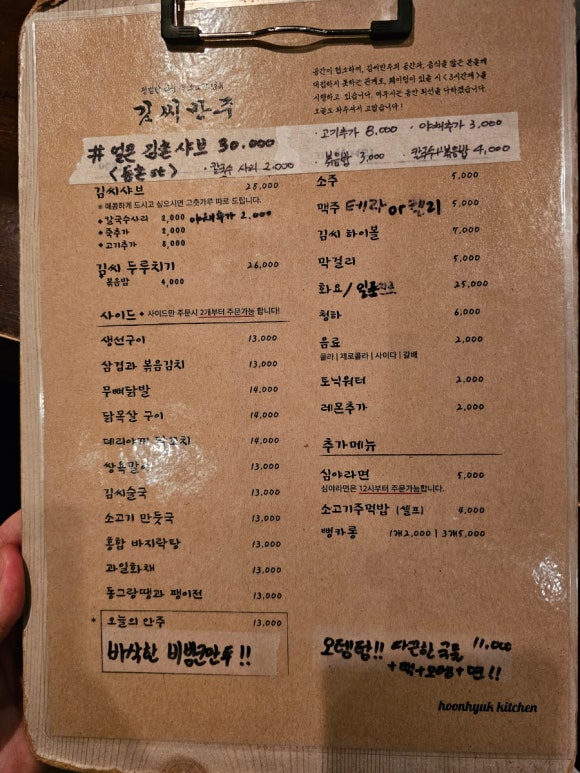 김씨안주
공간이 협소하여, 김씨안주의 공간과, 음식을 많은 분들께
대접하지 못하는 관계로, 웨이팅이 있을 시 <3시간제>를
시행하고 있습니다. 머무시는 동안 최선을 다하겠습니다.
오늘도 와주셔서 고맙습니다!
# 얼큰 김촌 샤브 30.000
<등촌 st> · 칼국수 사리 2.000
· 고기추가 8,000 · 야채추가 3,000
볶음밥 3,000 칼국수+볶음밥 4,000
김씨샤브 28,000
※ 매콤하게 드시고 싶으시면 고춧가루 따로 드립니다.
+ 칼국수사리 2,000 야채추가 2.000
+ 죽추가 2,000
+ 고기추가 8,000
김씨 두루치기 26,000
볶음밥 4,000
사이드 + 사이드만 주문시 2개부터 주문가능 합니다!
생선구이 13,000
삼겹과 볶음김치 13,000
무뼈닭발 14,000
닭목살 구이 14,000
데리야끼 닭꼬치 14,000
쌍욕말이 13,000
김씨술국 13,000
소고기 만둣국 13,000
홍합 바지락탕 13,000
과일화채 13,000
동그랑땡과 팽이전 13,000
+ 오늘의 안주 13,000
바삭한 비빔만두!!
소주 5,000
맥주 테라 or 켈리 5,000
김씨 하이볼 7,000
막걸리 5,000
화요/일품진로 25,000
청하 6,000
음료 2,000
콜라 | 제로콜라 | 사이다 | 갈배
토닉워터 2,000
레몬추가 2,000
추가메뉴
심야라면 5,000
심야라면은 12시부터 주문가능합니다.
소고기주먹밥 (셀프) 4,000
뻥카롱 1개2,000 | 3개5,000
오뎅탕!! 따끈한 국물 11,000
+떡+오뎅+면!!
hoonhyuk kitchen